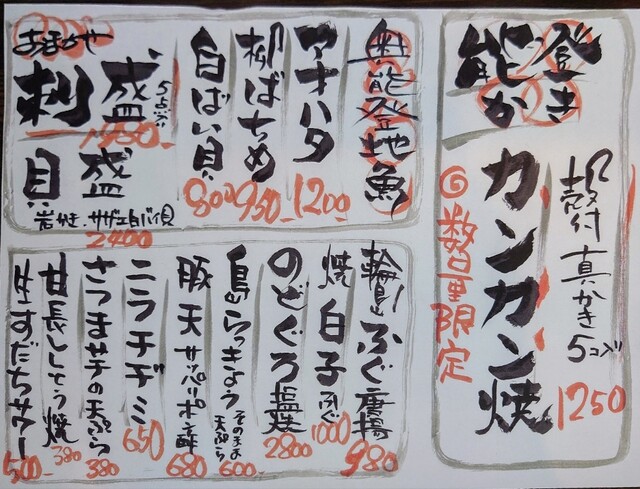 能登かき
カンカン焼
殻付真かき5コ入
1250
◎数量限定
奥能登地魚
アオハタ
1200
柳ばちめ
950
白ばい貝
800
おまかせ
刺盛
5点盛
1950
貝盛
岩かき、サザエ、白バイ貝
2400
輪島ふぐ唐揚
980
焼白子ふぐ
1000
のどぐろ塩焼
2800
島らっきょう
そのまま
天ぷら
600
豚天サッパリポン酢
680
ニラチヂミ
650
さつまイモの天ぷら
380
甘長ししとう焼
380
生すだちサワー
500